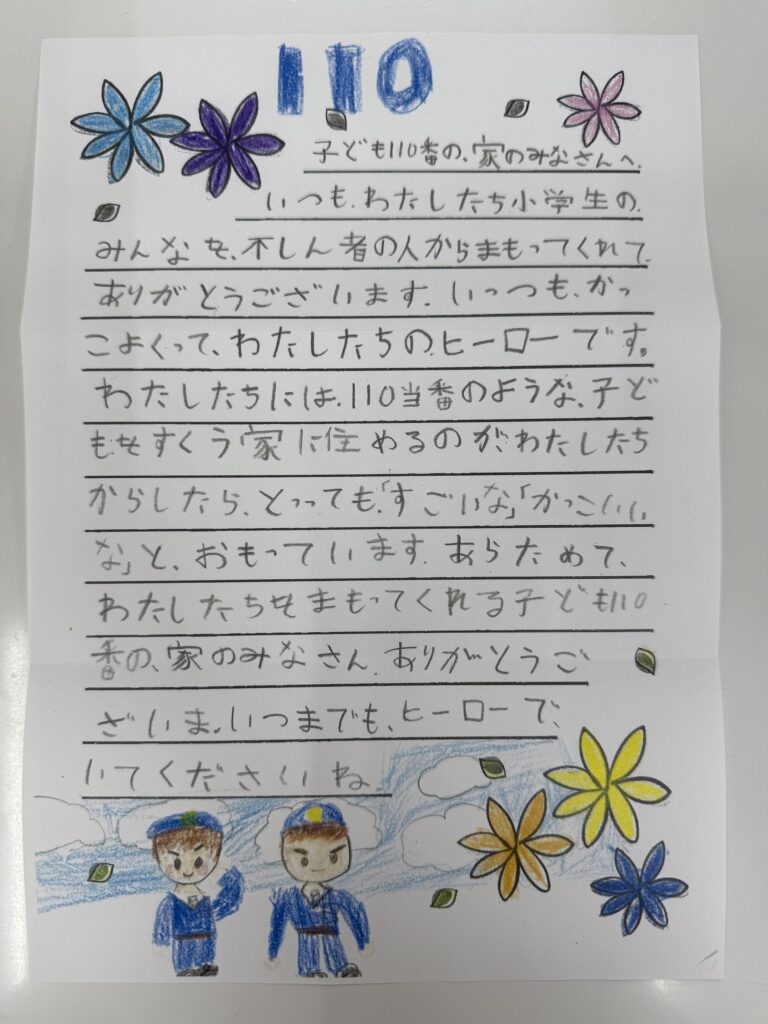 110
子ども110番の、家のみなさんへ、
いつも、わたしたち小学生の、
みんなを、不しん者の人からまもってくれて、
ありがとうございます。いっつも、かっ
こよくって、わたしたちの、ヒーローです。
わたしたちには、110当番のような、子ど
もをすくう家に住めるのが、わたしたち
からしたら、とっっても、「すごいな」「かっこいい
な」と、おもっています。あらためて、
わたしたちをまもってくれる子ども110
番の、家のみなさん、ありがとうご
ざいま。いつまでも、ヒーローで、
いてくださいね